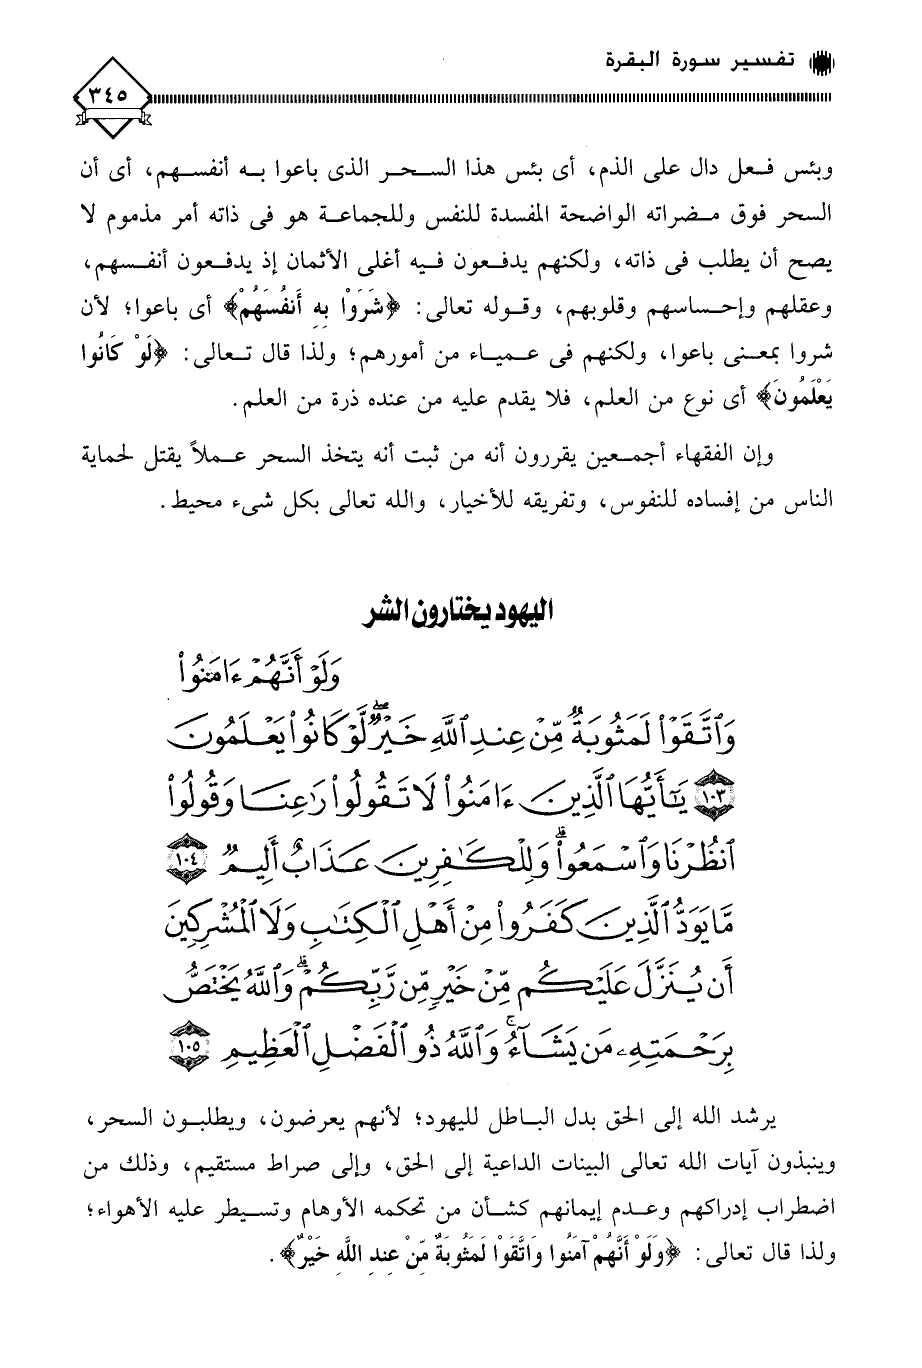 تفسير سورة البقرة
٣٤٥
وبئس فعل دال على الذم، أى بئس هذا السحر الذى باعوا به أنفسهم، أى أن
السحر فوق مضراته الواضحة المفسدة للنفس وللجماعة هو فى ذاته أمر مذموم لا
يصح أن يطلب فى ذاته، ولكنهم يدفعون فيه أغلى الأثمان إذ يدفعون أنفسهم،
وعقلهم وإحساسهم وقلوبهم، وقوله تعالى: ﴿شَرَوْا بِهِ أَنفُسَهُمْ﴾ أى باعوا؛ لأن
شروا بمعنى باعوا، ولكنهم فى عمياء من أمورهم؛ ولذا قال تعالى: ﴿لَوْ كَانُوا
يَعْلَمُونَ﴾ أى نوع من العلم، فلا يقدم عليه من عنده ذرة من العلم.
وإن الفقهاء أجمعين يقررون أنه من ثبت أنه يتخذ السحر عملاً يقتل لحماية
الناس من إفساده للنفوس، وتفريقه للأخيار، والله تعالى بكل شىء محيط.
اليهود يختارون الشر
وَلَوْ أَنَّهُمْ ءَامَنُوا۟
وَٱتَّقَوْا۟ لَمَثُوبَةٌ مِّنْ عِندِ ٱللَّهِ خَيْرٌ ۖ لَّوْ كَانُوا۟ يَعْلَمُونَ
١٠٣ يَـٰٓأَيُّهَا ٱلَّذِينَ ءَامَنُوا۟ لَا تَقُولُوا۟ رَٰعِنَا وَقُولُوا۟
ٱنظُرْنَا وَٱسْمَعُوا۟ ۗ وَلِلْكَـٰفِرِينَ عَذَابٌ أَلِيمٌ ١٠٤
مَّا يَوَدُّ ٱلَّذِينَ كَفَرُوا۟ مِنْ أَهْلِ ٱلْكِتَـٰبِ وَلَا ٱلْمُشْرِكِينَ
أَن يُنَزَّلَ عَلَيْكُم مِّنْ خَيْرٍ مِّن رَّبِّكُمْ ۗ وَٱللَّهُ يَخْتَصُّ
بِرَحْمَتِهِۦ مَن يَشَآءُ ۚ وَٱللَّهُ ذُو ٱلْفَضْلِ ٱلْعَظِيمِ ١٠٥
يرشد الله إلى الحق بدل الباطل لليهود؛ لأنهم يعرضون، ويطلبون السحر،
وينبذون آيات الله تعالى البينات الداعية إلى الحق، وإلى صراط مستقيم، وذلك من
اضطراب إدراكهم وعدم إيمانهم كشأن من تحكمه الأوهام وتسيطر عليه الأهواء؛
ولذا قال تعالى: ﴿وَلَوْ أَنَّهُمْ آمَنُوا وَاتَّقَوْا لَمَثُوبَةٌ مِّنْ عِندِ اللَّهِ خَيْرٌ﴾.